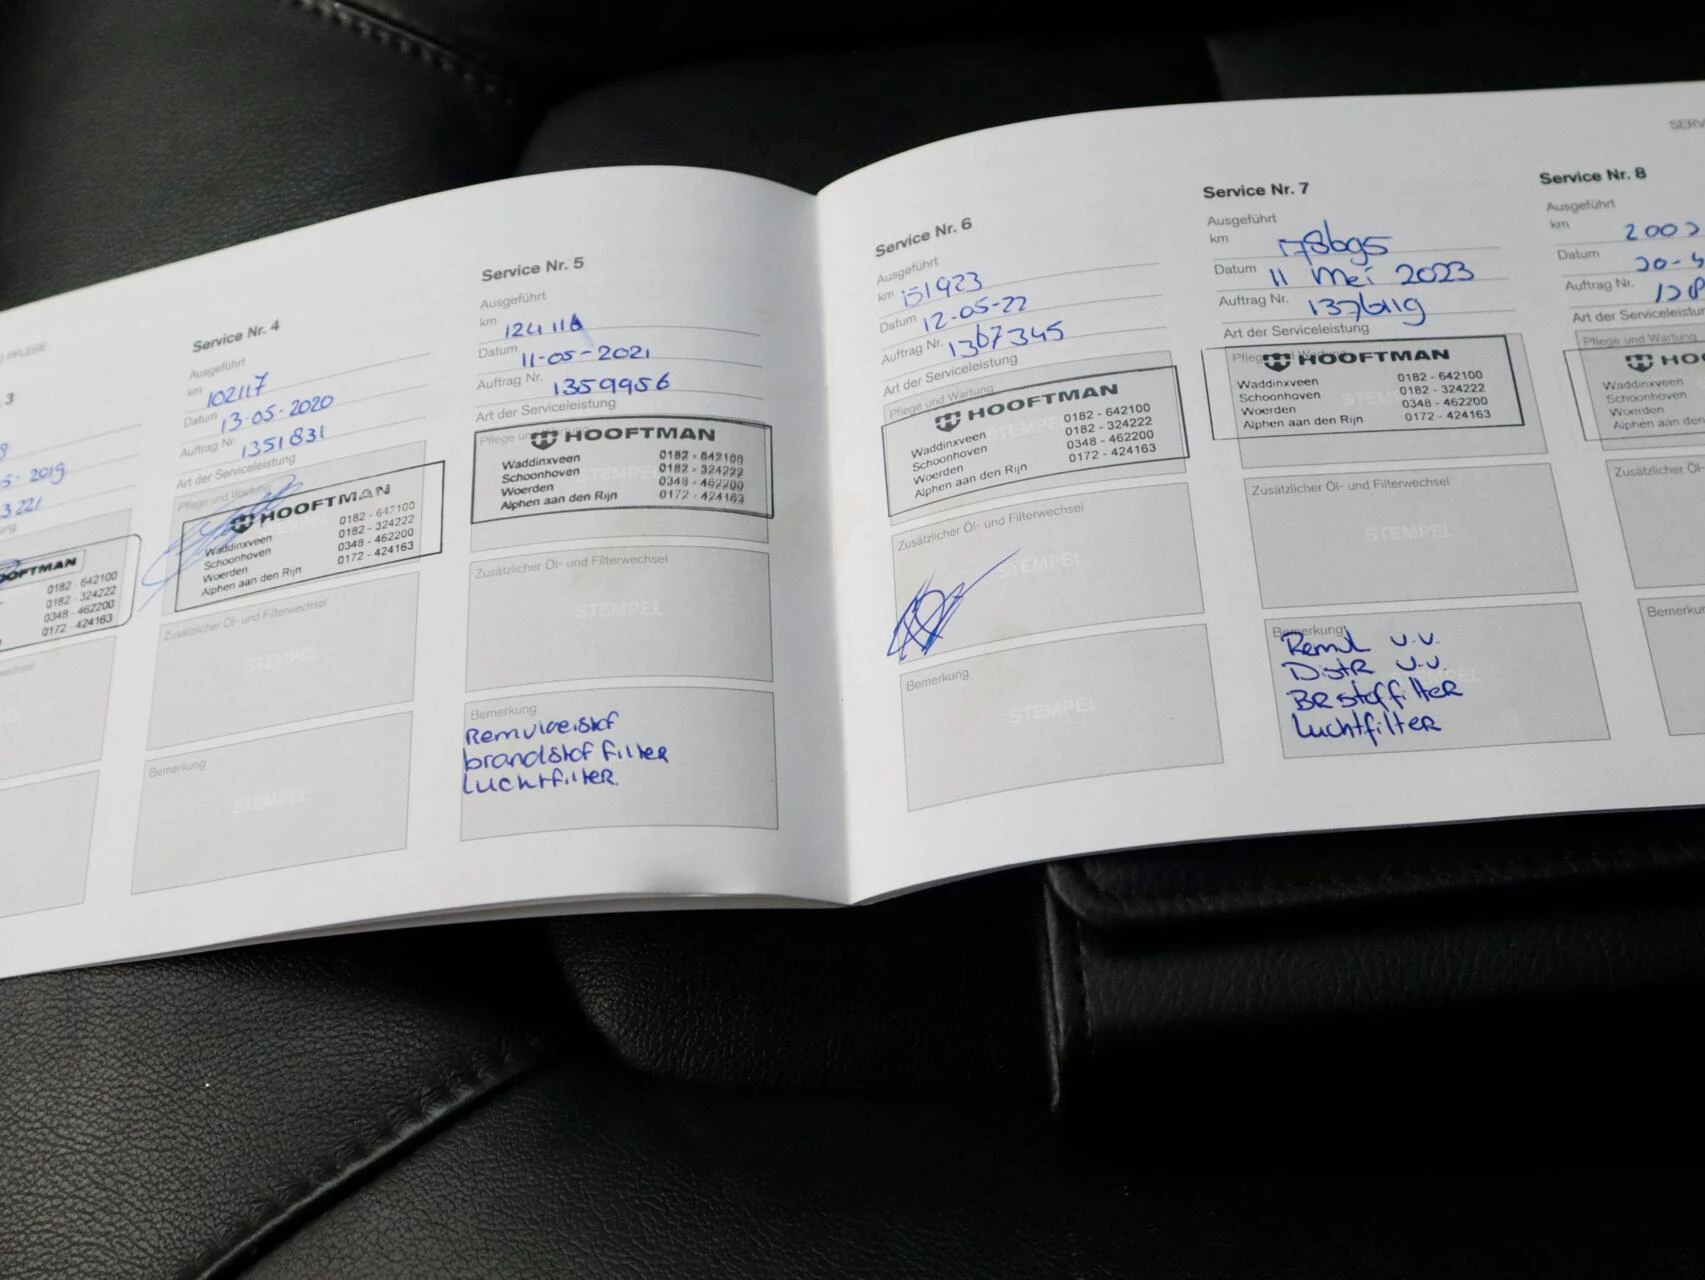 PFLEGE
3
8
5-2019
3221
OOFTMAN
0182 - 642100
0182 - 324222
0348 - 462200
0172 - 424163
Service Nr. 4
Ausgeführt
km 102117
Datum 13-05-2020
Auftrag Nr. 1351831
Art der Serviceleistung
Pflege und Wartung
HOOFTMAN
Waddinxveen 0182 - 642100
Schoonhoven 0182 - 324222
Woerden 0348 - 462200
Alphen aan den Rijn 0172 - 424163
Zusätzlicher Öl- und Filterwechsel
STEMPEL
Bemerkung
STEMPEL
Service Nr. 5
Ausgeführt
km 124116
Datum 11-05-2021
Auftrag Nr. 1359956
Art der Serviceleistung
Pflege und Wartung
HOOFTMAN
Waddinxveen 0182 - 642100
Schoonhoven 0182 - 324222
Woerden 0348 - 462200
Alphen aan den Rijn 0172 - 424163
STEMPEL
Zusätzlicher Öl- und Filterwechsel
STEMPEL
Bemerkung
Remvloeistof
brandstof filter
Luchtfilter
Service Nr. 6
Ausgeführt
km 151923
Datum 12-05-22
Auftrag Nr. 1367345
Art der Serviceleistung
Pflege und Wartung
HOOFTMAN
Waddinxveen 0182 - 642100
Schoonhoven 0182 - 324222
Woerden 0348 - 462200
Alphen aan den Rijn 0172 - 424163
STEMPEL
Zusätzlicher Öl- und Filterwechsel
STEMPEL
Bemerkung
STEMPEL
SERV
Service Nr. 7
Ausgeführt
km 178695
Datum 11 Mei 2023
Auftrag Nr. 1376119
Art der Serviceleistung
Pflege und Wartung
HOOFTMAN
Waddinxveen 0182 - 642100
Schoonhoven 0182 - 324222
Woerden 0348 - 462200
Alphen aan den Rijn 0172 - 424163
Zusätzlicher Öl- und Filterwechsel
STEMPEL
Bemerkung
Remvl v.v.
Distr v.v.
Brstoffilter
Luchtfilter
Service Nr. 8
Ausgeführt
km 2002
Datum 20-4
Auftrag Nr. 138
Art der Serviceleistun
Pflege und Wartung
HOO
Waddinxveen
Schoonhoven
Woerden
Alphen aan den Rijn
Zusätzlicher Öl- und
Bemerkung